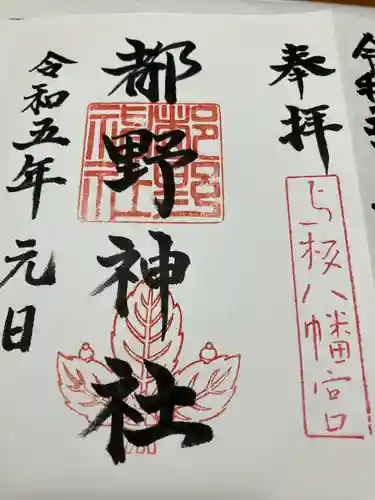 奉拝
与板八幡宮
都野神社
都野神社
令和五年 元日